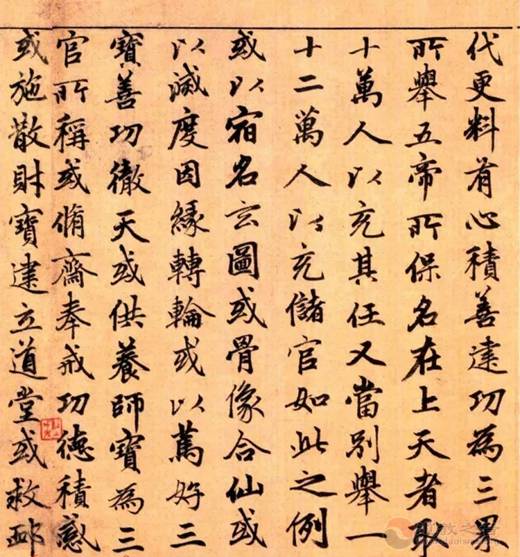 代更料有心積善建功為三界
所舉五帝所保名在上天者取
十萬人以充其任又當別舉一
十二萬人以充儲官如此之例
或以宿名玄圖或骨像合仙或
以滅度因緣轉輪或以篤好三
寶善功徹天或供養師寶為三
官所稱或脩齋奉戒功德積感
或施散財寶建立道堂或救卹